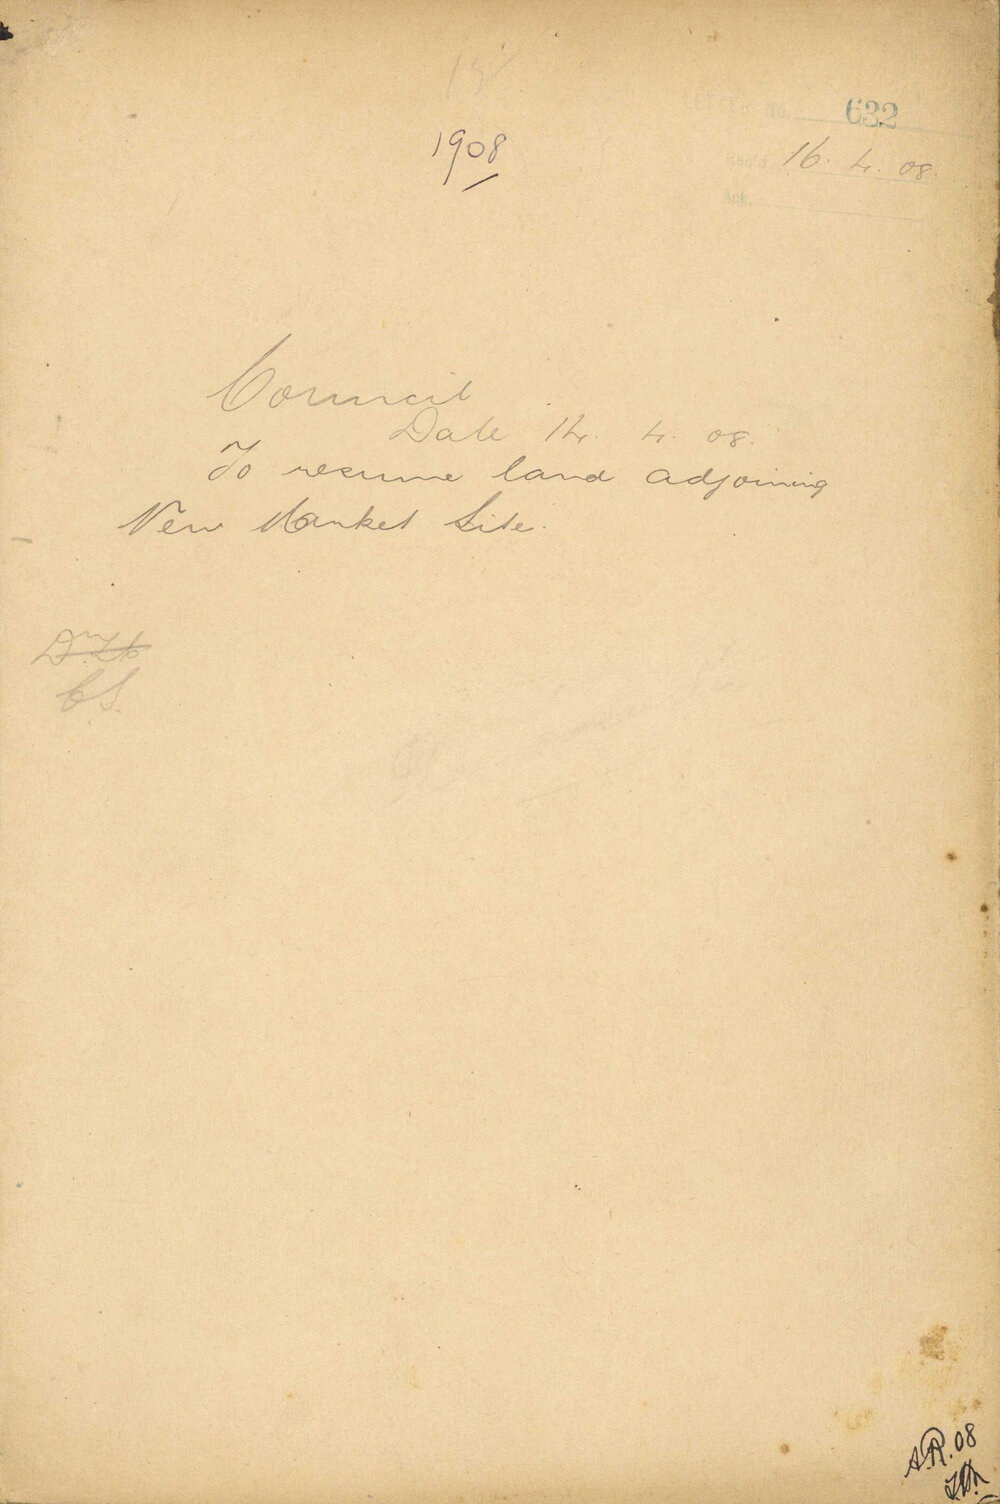 LETTER No. 632
1908
Rec'd. 16. 4. 08.
Ack.
Council
Date 14. 4. 08.
To resume land adjoining
New Market Site.
C.S.
A.R. 08